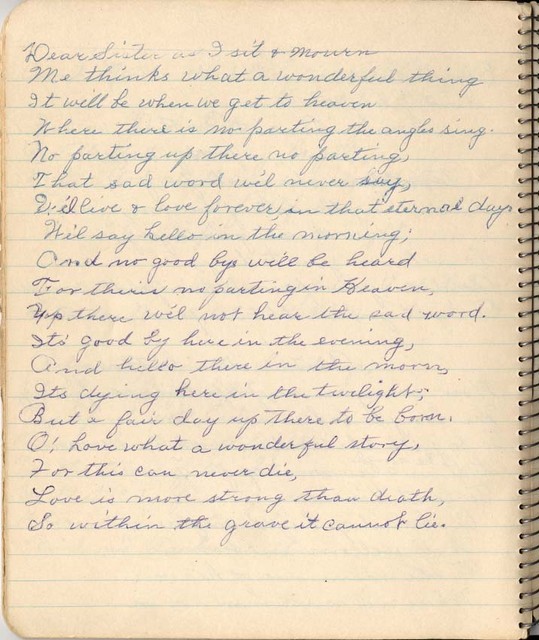 Dear Sister as I sit & mourn
Me thinks what a wonderful thing
It will be when we get to heaven
Where there is no parting the angles sing.
No parting up there no parting,
That sad word we'l never say,
We'l live & love forever, in that eternal day
We'l say hello in the morning;
And no good bys will be heard
For theris no parting in Heaven,
Up there we'l not hear the sad word.
Its good by here in the evening,
And hello there in the morn,
Its dying here in the twelight;
But a fair day up there to be born.
O! Love what a wonderful story,
For this can never die,
Love is more strong than death,
So within the grave it cannot lie.